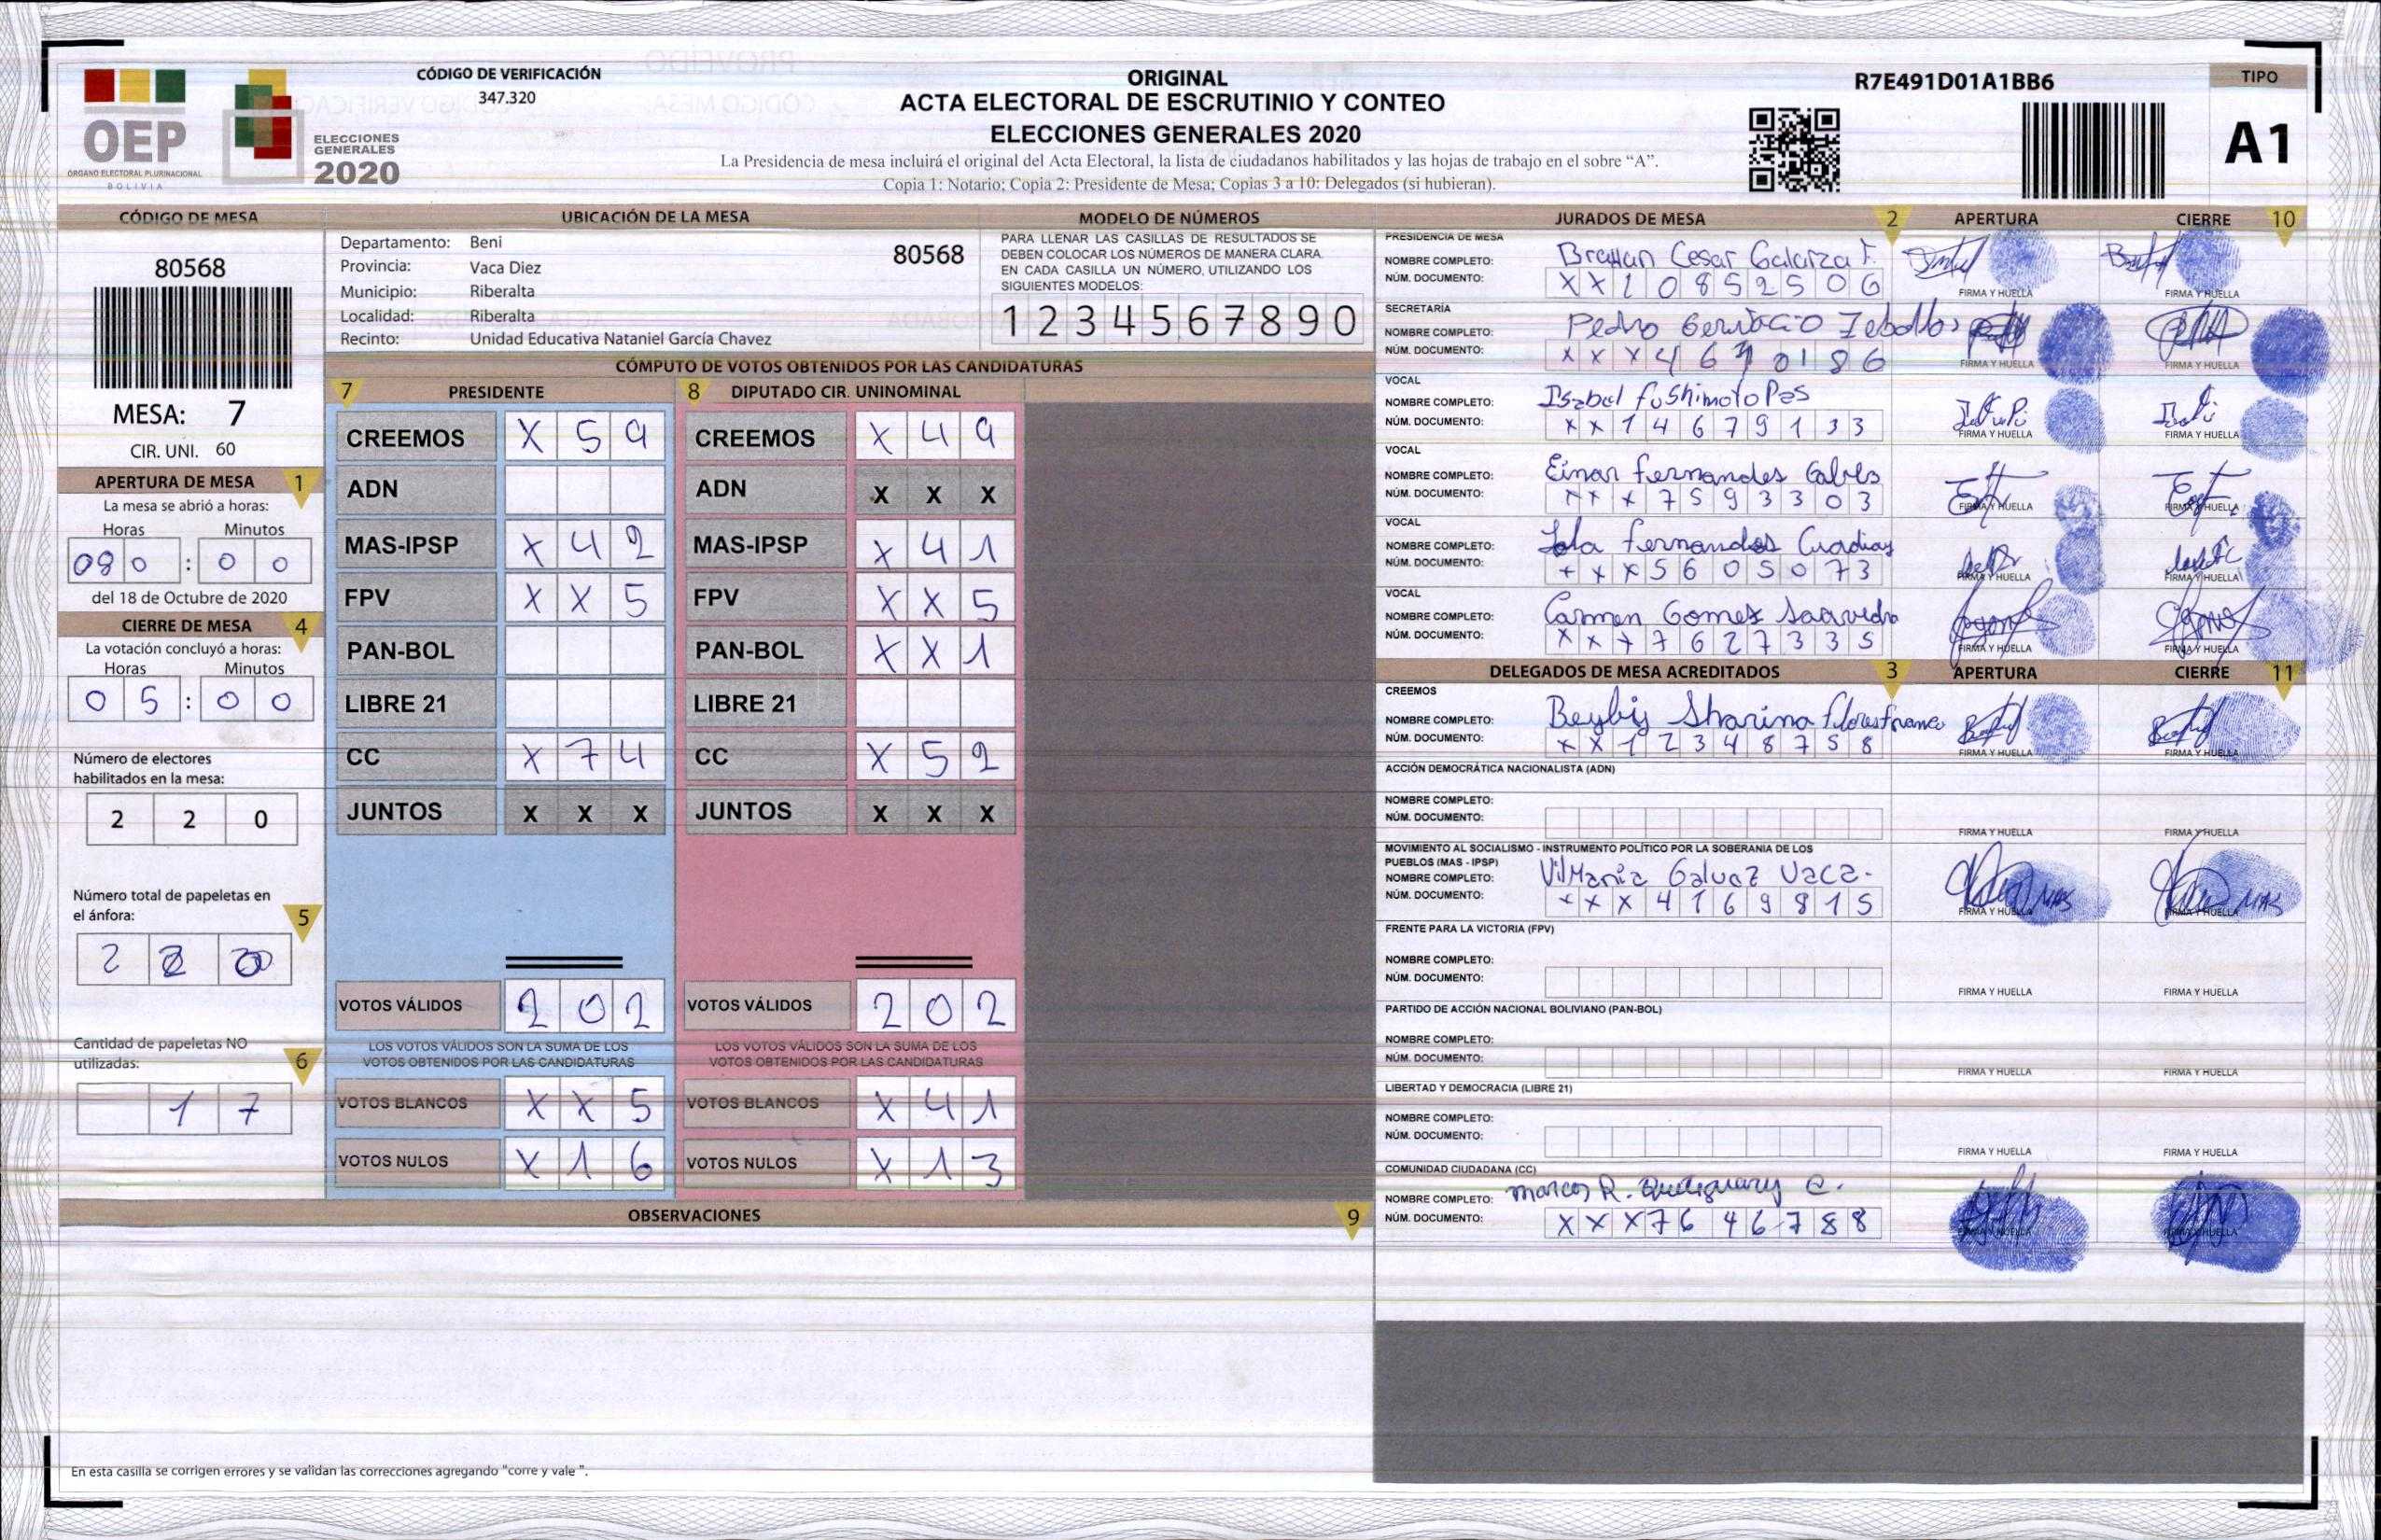 CÓDIGO DE VERIFICACIÓN
347.320
ORIGINAL
ACTA ELECTORAL DE ESCRUTINIO Y CONTEO
ELECCIONES GENERALES 2020
La Presidencia de mesa incluirá el original del Acta Electoral, la lista de ciudadanos habilitados y las hojas de trabajo en el sobre “A”.
Copia 1: Notario; Copia 2: Presidente de Mesa; Copias 3 a 10: Delegados (si hubieran).
R7E491D01A1BB6
TIPO
A1
OEP
ÓRGANO ELECTORAL PLURINACIONAL
BOLIVIA
ELECCIONES
GENERALES
2020
CÓDIGO DE MESA
80568
MESA: 7
CIR. UNI. 60
APERTURA DE MESA 1
La mesa se abrió a horas:
Horas Minutos
: 0 0
del 18 de Octubre de 2020
CIERRE DE MESA 4
La votación concluyó a horas:
Horas Minutos
0 5 : 0 0
Número de electores
habilitados en la mesa:
2 2 0
Número total de papeletas en
el ánfora: 5
2
Cantidad de papeletas NO
utilizadas: 6
1 7
UBICACIÓN DE LA MESA
Departamento: Beni
80568
Provincia: Vaca Diez
Municipio: Riberalta
Localidad: Riberalta
Recinto: Unidad Educativa Nataniel García Chavez
MODELO DE NÚMEROS
PARA LLENAR LAS CASILLAS DE RESULTADOS SE
DEBEN COLOCAR LOS NÚMEROS DE MANERA CLARA.
EN CADA CASILLA UN NÚMERO, UTILIZANDO LOS
SIGUIENTES MODELOS:
1 2 3 4 5 6 7 8 9 0
CÓMPUTO DE VOTOS OBTENIDOS POR LAS CANDIDATURAS
7 PRESIDENTE
CREEMOS X 5 9
ADN
MAS-IPSP X 4 2
FPV X X 5
PAN-BOL
LIBRE 21
CC X 7 4
JUNTOS X X X
VOTOS VÁLIDOS 2 0 2
LOS VOTOS VÁLIDOS SON LA SUMA DE LOS
VOTOS OBTENIDOS POR LAS CANDIDATURAS
VOTOS BLANCOS X X 5
VOTOS NULOS X 1 6
8 DIPUTADO CIR. UNINOMINAL
CREEMOS X 4 9
ADN X X X
MAS-IPSP X 4 1
FPV X X 5
PAN-BOL X X 1
LIBRE 21
CC X 5 2
JUNTOS X X X
VOTOS VÁLIDOS 2 0 2
LOS VOTOS VÁLIDOS SON LA SUMA DE LOS
VOTOS OBTENIDOS POR LAS CANDIDATURAS
VOTOS BLANCOS X 4 1
VOTOS NULOS X 1 3
OBSERVACIONES 9
En esta casilla se corrigen errores y se validan las correcciones agregando "corre y vale ".
JURADOS DE MESA 2 APERTURA CIERRE 10
PRESIDENCIA DE MESA
NOMBRE COMPLETO: Cesar Galarza F.
NÚM. DOCUMENTO: X X 1 0 8 5 2 5 0 6
FIRMA Y HUELLA FIRMA Y HUELLA
SECRETARÍA
NOMBRE COMPLETO: Pedro
NÚM. DOCUMENTO:
FIRMA Y HUELLA FIRMA Y HUELLA
VOCAL
NOMBRE COMPLETO: Isabel
NÚM. DOCUMENTO: X X 1 4 6 7 9 1 3 3
FIRMA Y HUELLA FIRMA Y HUELLA
VOCAL
NOMBRE COMPLETO: Einar Fernandes
NÚM. DOCUMENTO: X X X 7 5 9 3 3 0 3
FIRMA Y HUELLA FIRMA Y HUELLA
VOCAL
NOMBRE COMPLETO: Fernandes
NÚM. DOCUMENTO: X X X 5 6 0 5 0 7 3
FIRMA Y HUELLA FIRMA Y HUELLA
VOCAL
NOMBRE COMPLETO: Carmen Gomez Saavedra
NÚM. DOCUMENTO: X X X 7 6 2 7 3 3 5
FIRMA Y HUELLA FIRMA Y HUELLA
DELEGADOS DE MESA ACREDITADOS 3 APERTURA CIERRE 11
CREEMOS
NOMBRE COMPLETO: Sharina
NÚM. DOCUMENTO: X X 1 2 3 4 8 7 5 8
FIRMA Y HUELLA FIRMA Y HUELLA
ACCIÓN DEMOCRÁTICA NACIONALISTA (ADN)
NOMBRE COMPLETO:
NÚM. DOCUMENTO:
FIRMA Y HUELLA FIRMA Y HUELLA
MOVIMIENTO AL SOCIALISMO - INSTRUMENTO POLÍTICO POR LA SOBERANÍA DE LOS
PUEBLOS (MAS - IPSP)
NOMBRE COMPLETO: Vaca.
NÚM. DOCUMENTO: X X X 4 1 6 9 8 1 5
FIRMA Y HUELLA MAS FIRMA Y HUELLA MAS
FRENTE PARA LA VICTORIA (FPV)
NOMBRE COMPLETO:
NÚM. DOCUMENTO:
FIRMA Y HUELLA FIRMA Y HUELLA
PARTIDO DE ACCIÓN NACIONAL BOLIVIANO (PAN-BOL)
NOMBRE COMPLETO:
NÚM. DOCUMENTO:
FIRMA Y HUELLA FIRMA Y HUELLA
LIBERTAD Y DEMOCRACIA (LIBRE 21)
NOMBRE COMPLETO:
NÚM. DOCUMENTO:
FIRMA Y HUELLA FIRMA Y HUELLA
COMUNIDAD CIUDADANA (CC)
NOMBRE COMPLETO: Marcos R.
NÚM. DOCUMENTO: X X X 7 6 4 6 7 8 8
FIRMA Y HUELLA FIRMA Y HUELLA